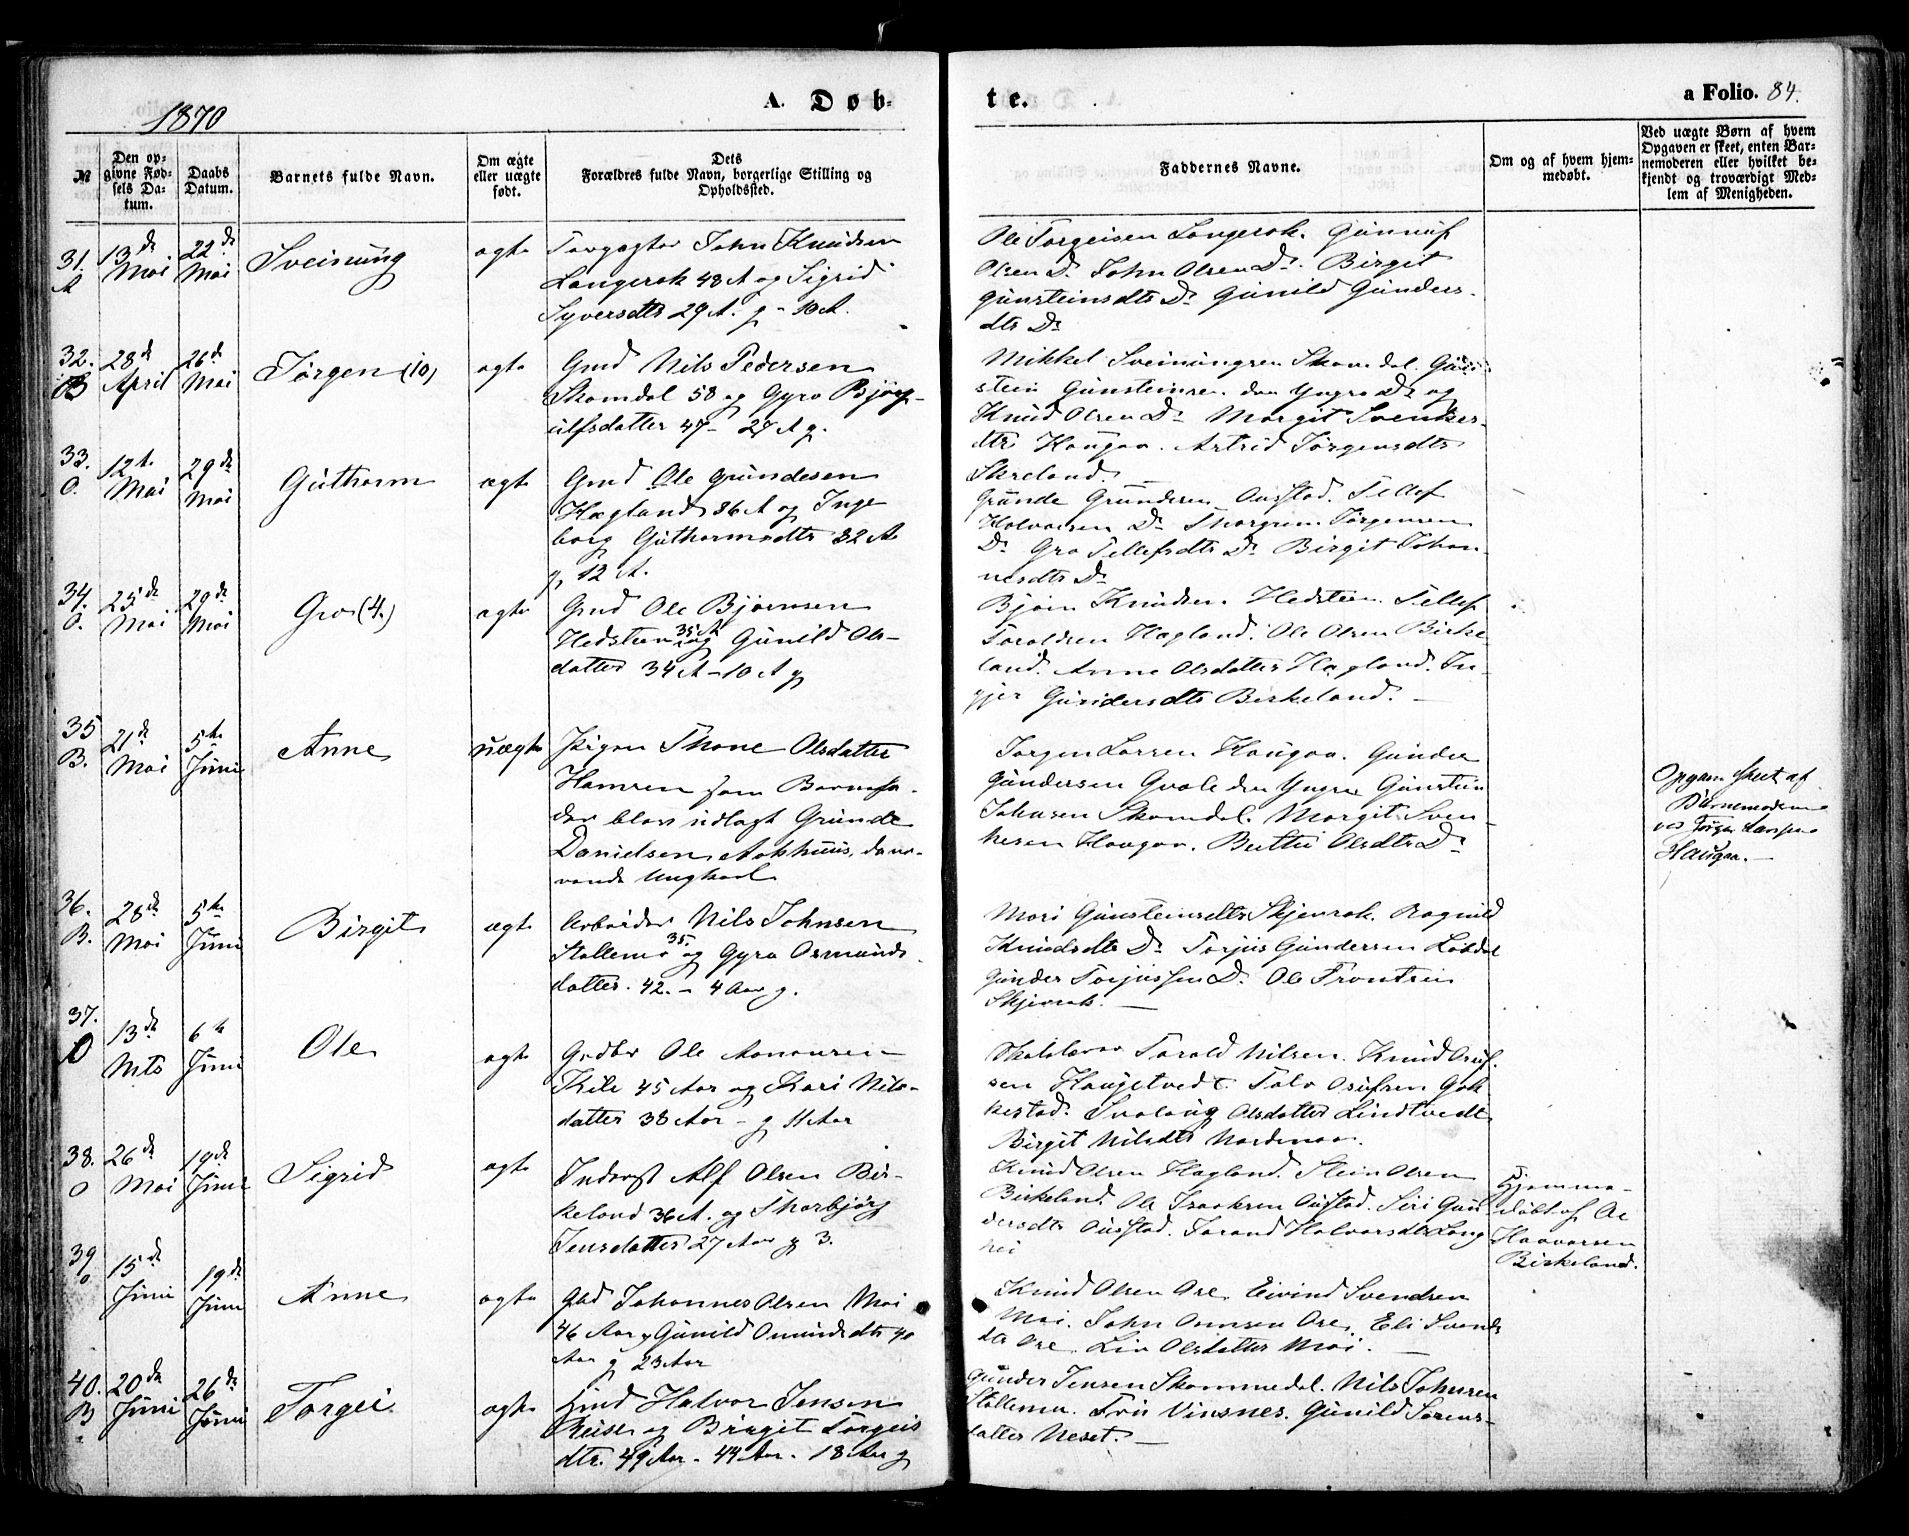 1870
A. Døb-
te.
a Folio. 84.
№
Den op-
givne Fød-
sels Da-
tum.
Daabs
Datum.
Barnets fulde Navn.
Om ægte
eller uægte
født.
Dets
Forældres fulde Navn, borgerlige Stilling og
Opholdssted.
Faddernes Navne.
Om og af hvem hjem-
medøbt.
Ved uægte Børn af hvem
Opgaven er skeet, enten Bar-
nemoderen eller hvilket be-
kjendt og troværdigt Med-
lem af Menigheden.
31.
A
13de
Mai
22de
Mai
Sveinung
ægte
John Knudsen
Langerak 48 A og Sigrid
Syversdtr 29 A. g - 10 A.
Ole Torgeisen Langerak. Gunnuf
Olsen Do John Olsen Do. Birgit
Gunsteinsdtr Do Gunild Gunders-
dtr Do
32.
B
28de
April
26de
Mai
Jørgen (10)
ægte
Gmd Nils Pedersen
Skomdal 58 og Gyro Bjørg-
ulfsdatter 47 - 27 A g.
Mikkel Sveinungsen Skomdal. Gun-
stein Gunsteinsen den Yngre Do og
Knud Olsen Do Margit Svenkes-
dtr Haugaa. Astrid Jørgensdtr
Skreland.
33.
O.
12te
Mai
29de
Mai
Guthorm
ægte
Gmd Ole Grundesen
Hægland 36 A og Inge
borg Guthormsdtr 32 A
g 12 A.
Grunde Grundesen Austad. Tellef
Halvorsen Do Thorgrim Jørgensen
Do Gro Tellefsdtr Do Birgit Johan-
nesdtr Do
34.
O.
25de
Mai
29de
Mai
Gro (4.)
ægte
Gmd Ole Bjørnsen
Hedsteen 35 A og Gunild Ols-
datter 34 A - 10 A g
Bjørn Knudsen Hedsteen. Tellef
Toroldsen Hægland. Ole Olsen Birke-
land. Anne Olsdatter Hægland. In-
gjer Gundersdtr Birkeland. -
35
B.
21de
Mai
5te
Juni
Anne
uægte
Pigen Thone Olsdatter
Hamren som Barnefa-
der blev udlagt Grunde
Danielsen Aakhuus, dava-
rende Ungkarl
Jørgen Larsen Haugaa. Gunder
Gundersen Qvale den Yngre Gunstein
Johnsen Skomdal. Margit Sven-
kesen Haugaa. Berthe Olsdtr Do
Opgave skeet af
Barnemoderen
ved Jørgen Larsen
Haugaa. -
36.
B.
28de
Mai
5te
Juni
Birgit
ægte
Arbeider Nils Johnsen
Stallemo 35. og Gyro Osmunds-
datter. 42. - 4 Aar g.
Mari Gunsteinsdtr Skjerrok. Ragnild
Knudsdtr Do Torjus Gundersen Løbdal
Gunder Torjussen Do. Ole Frontsen
Skjerrok. -
37.
O
13de
Mts
6te
Juni
Ole
ægte
Gbr Ole Aanonsen
Kile 45 Aar og Kari Nils-
datter 38 Aar - g 11 Aar
Skolelærer Torold Nilsen. Knud Osuf-
sen Haugetvedt. Tolv Osufsen Gak-
kestad. Svalaug Olsdatter Lindtvedt
Birgit Nilsdtr Nordenaa.
38.
O
26de
Mai
19de
Juni
Sigrid
ægte
Inderst Alf Olsen Bir-
keland 36 A. og Thorbjørg
Jensdatter 27 Aar g 3.
Knud Olsen Hægland. Stein Olsen
Birkeland. Ole Isaaksen Austad. Siri Gun-
dersdtr Austad. Torand Halvorsdtr Lang-
hei
Hjemme-
døbt af Ole
Haavorsen
Birkeland.
39
O.
15de
Juni
19de
Juni
Anne
ægte
Gbd Johannes Olsen Moi
46 Aar g Gunild Omundsdtr 40
Aar g 23 Aar
Knud Olsen Ose, Eivind Svendsen
Moi. John Omsen Ose, Eli Svends
dtr Ose. Liv Olsdatter Moi. -
40.
B
20de
Juni
26de
Juni
Torgei
ægte
Gmd Halvor Jensen
Reise og Birgit Torgeis
dtr. 49 Aar - 44 Aar - 18 Aar g
Gunder Jensen Skommedal. Nils Johnsen
Stallemo. Vinsnes. Gunild Sørens-
datter Neset. -